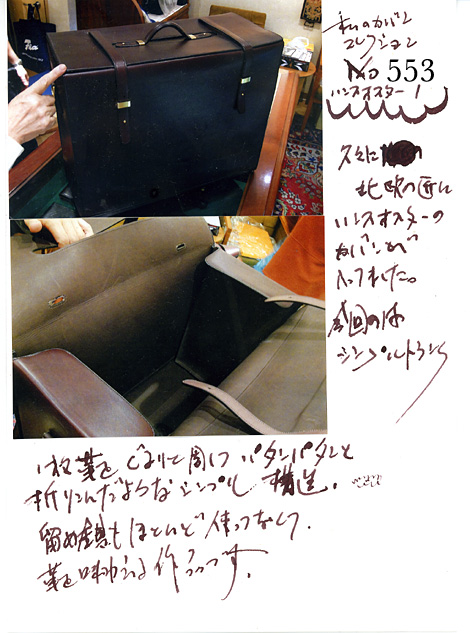 私のカバン
コレクション
No 553
ハンスオスター!
久々に
北欧の匠
ハンスオスターの
カバンが
入ってきた。
今回のは
シンプルトランク
1枚革をぐるりと周し パタンパタンと
折りこんだようなシンプル 構造.
留め金具もほとんど使ってなくて.
革を味わえる作りっです.